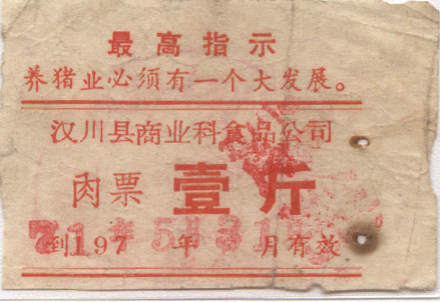 最高指示
养猪业必须有一个大发展。
汉川县商业科食品公司
肉票 壹斤
到197 年 月有效
71年5月31日